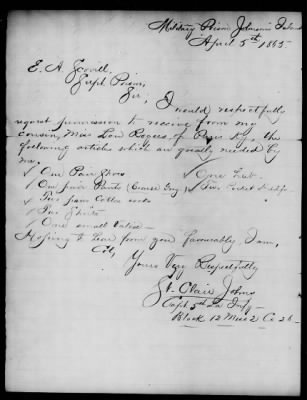 Military Prison Johnson's Island
April 5th 1865
E. A. Scovill,
Supt Prison,
Sir, I would respectfully
request permission to receive from my
cousin, Miss Lou Rogers, of Paris Ky. the
following articles which are greatly needed by
me.
✓ One Pair Shoes ✓ One Hat.
✓ One pair Pants (Coarse Grey) ✓ Two Pocket Hdkfs
✓ Two pair Cotton socks
✓ Two Shirts
✓ One small Valise
Hoping to hear from you favourably, I am,
Col,
Yours Very Respectfully
St. Clair Johns
Capt 5th La Infy
Block 12 Mess 2 Co 26